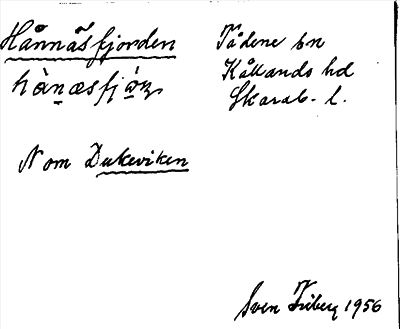 Hånnäsfjorden
hànæsfjó̱ɳ
Tådene sn
Kållands hd
Skarab. l.
N om Dukeviken
Sven Friberg 1956